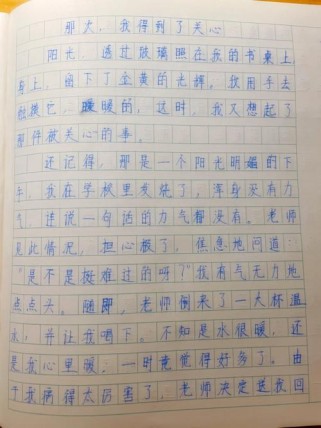 那天,我得到了关心
阳光,透过玻璃照在我的书桌上
身上,留下了金黄的光辉。我用手去
触摸它,暖暖的,这时,我又想起了
那件被关心的事。
还记得,那是一个阳光明媚的下
午,我在学校里发烧了,浑身没有力
气,连说一句话的力气都没有。老师
见此情况,担心极了,焦急地问道:
“是不是挺难过的吗?”我有气无力地
点点头。随即,老师倒来了一大杯温
水,并让我喝下。不知是水很暖,还
是我心里暖,一时竟觉得好多了。由
于我病得太厉害了,老师决定送我回